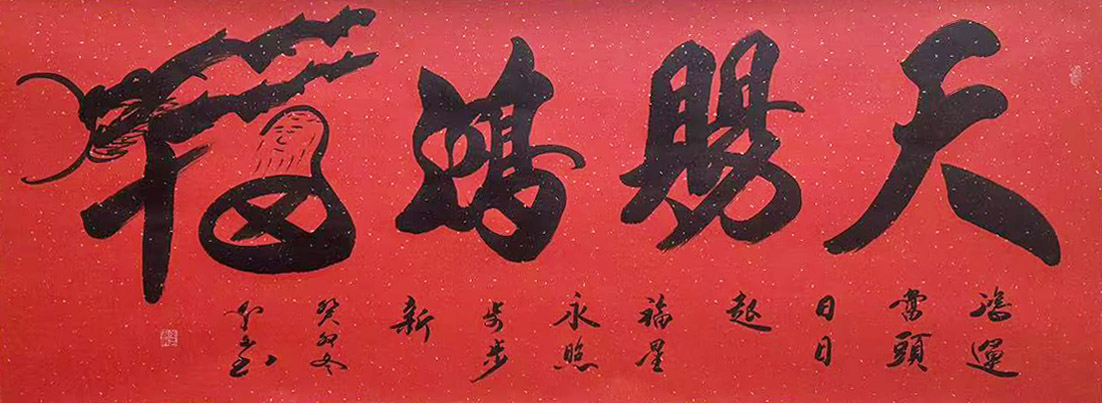 天賜鴻福
鴻運
當頭
日日
起
福星
永照
步步
新
癸卯冬